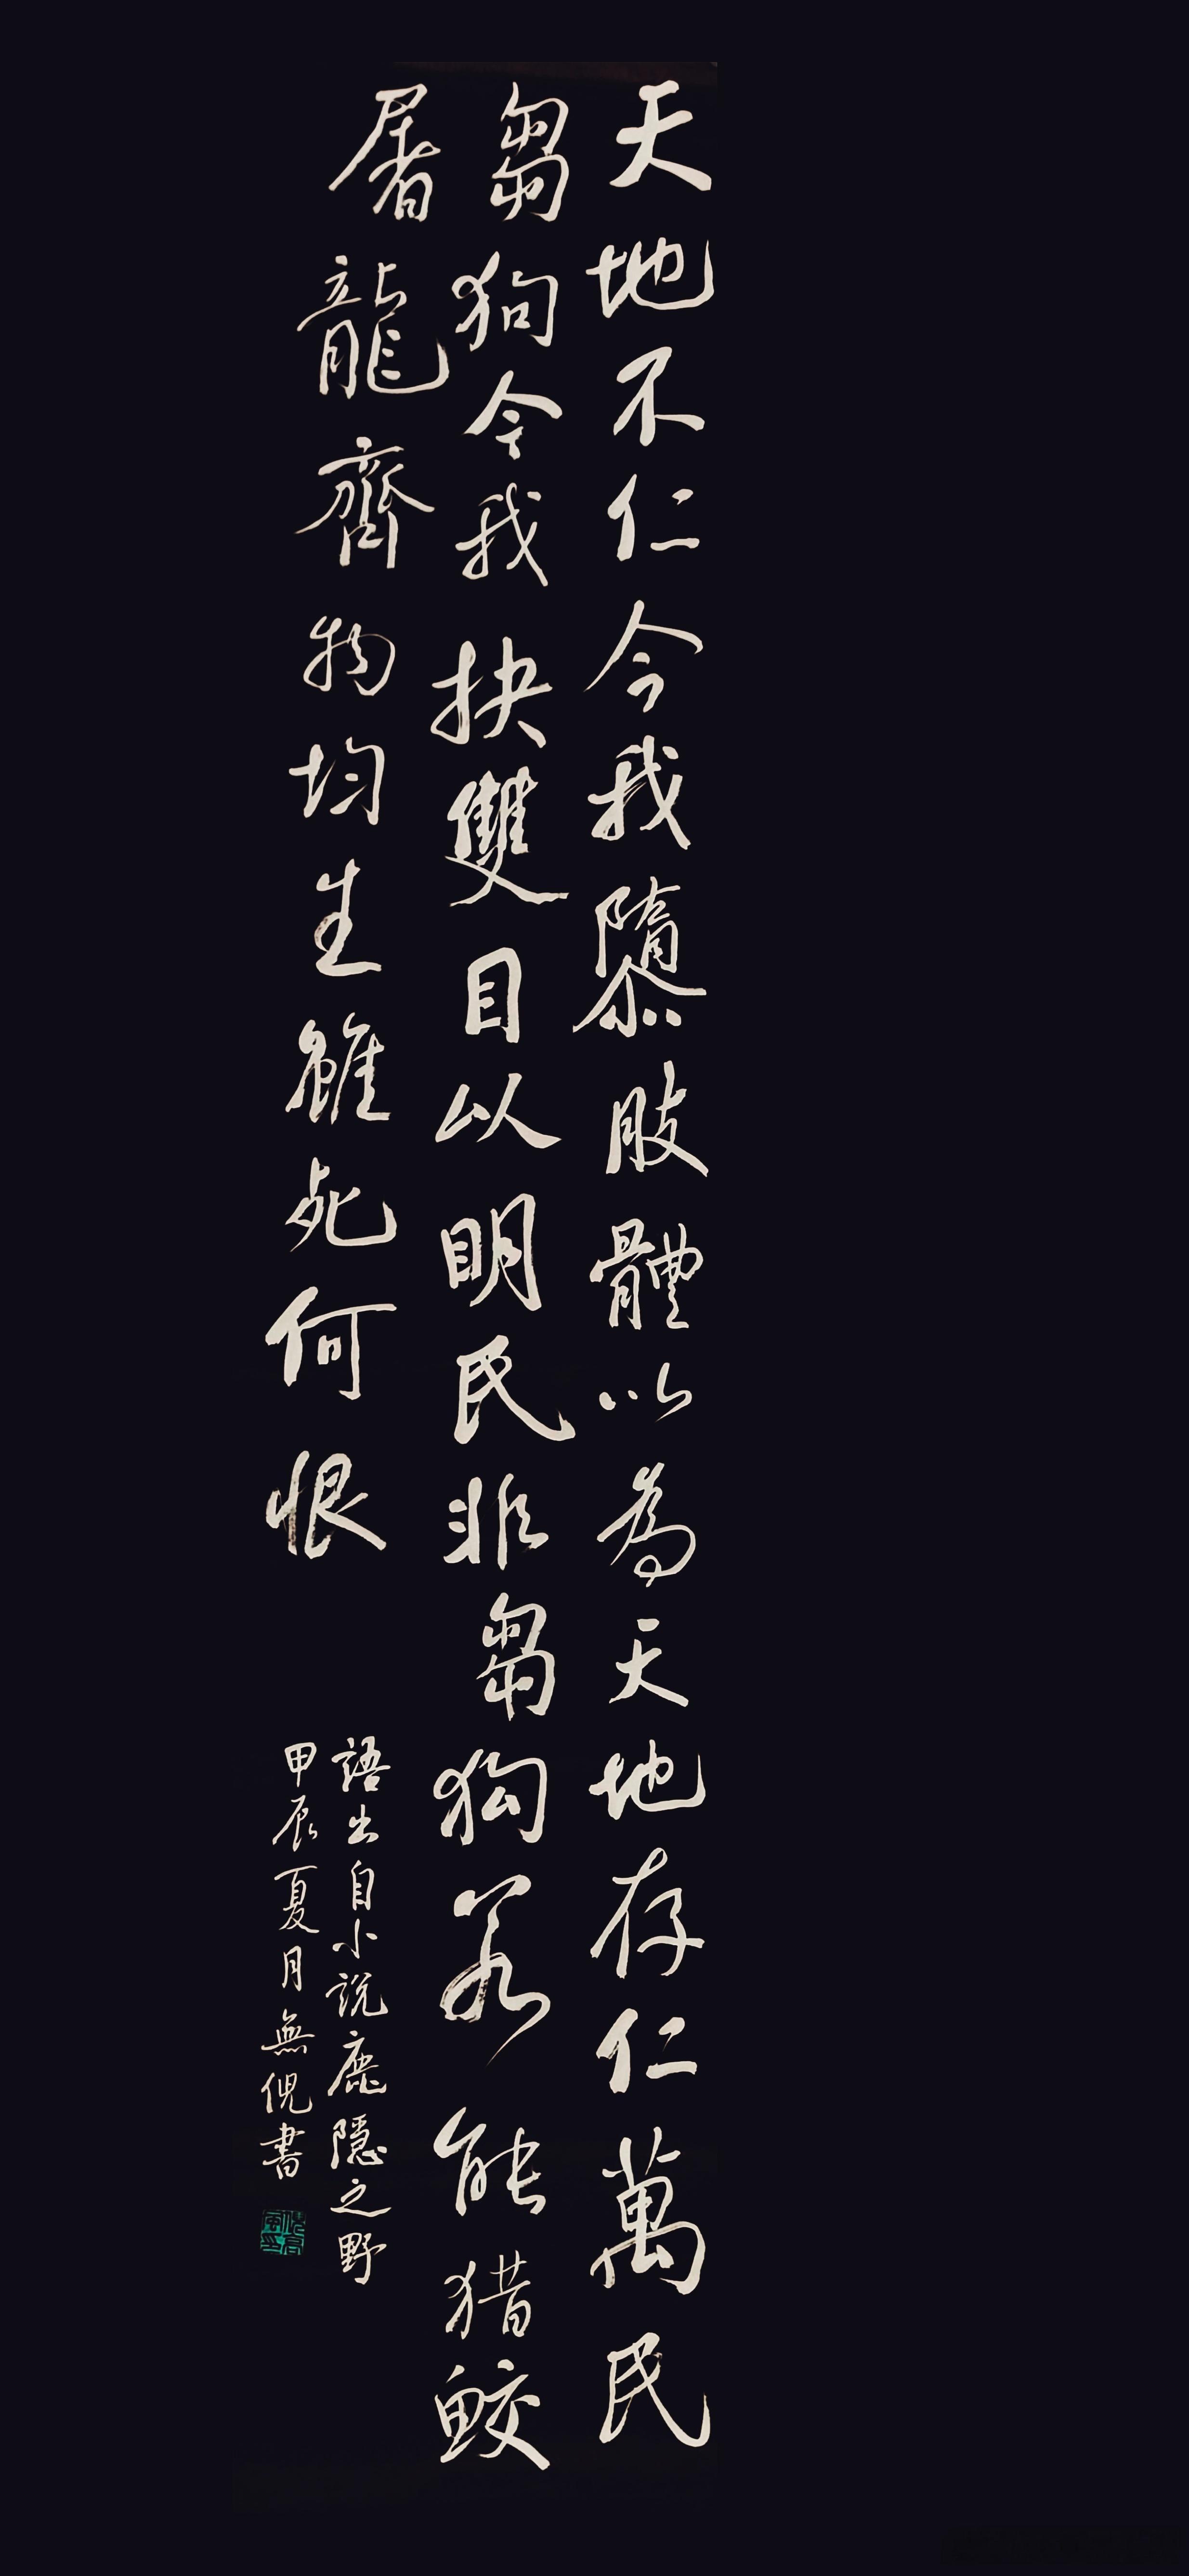 天地不仁今我隳肢體以為天地存仁萬民
芻狗今我抉雙目以明民非芻狗若能猎鮫
屠龍齊物均生雖死何恨
語出自小說鹿隱之野
甲辰夏月無倪書